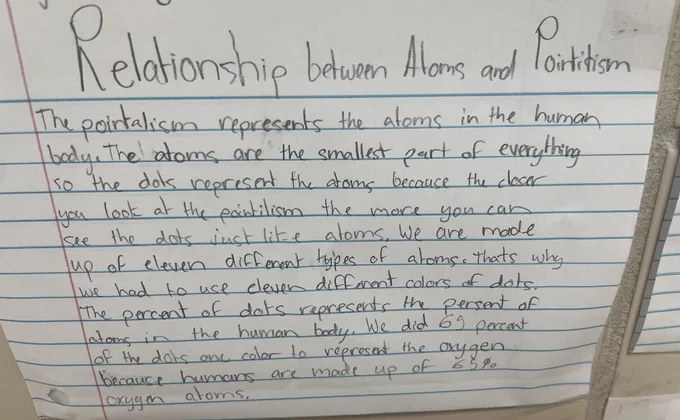 Relationship between Atoms and Pointitism
The pointalism represents the atoms in the human
body. The atoms are the smallest part of everything
so the dots represent the atoms because the closer
you look at the pointilism the more you can
see the dots just like atoms. We are made
up of eleven different types of atoms. thats why
we had to use eleven different colors of dots.
The percent of dots represents the persent of
atoms in the human body. We did 65 percent
of the dots one color to represent the oxygen
because humans are made up of 65%
oxygen atoms.